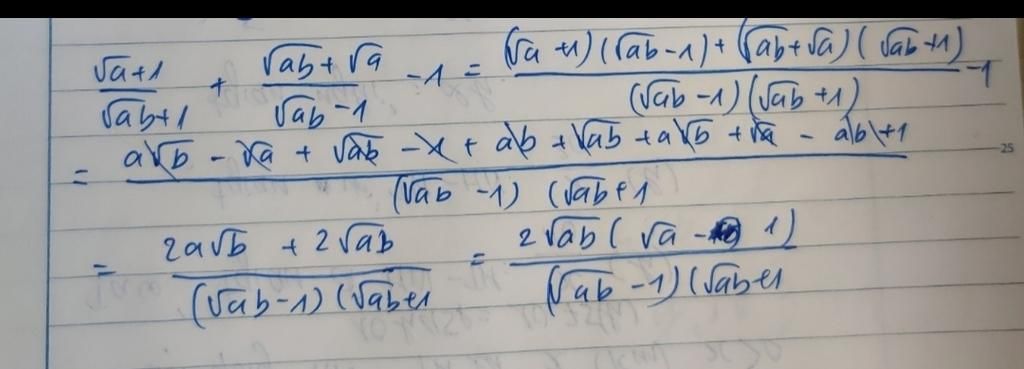 (√a+1)/(√ab+1) + (√ab+√a)/(√ab-1) - 1 = ((√a+1)(√ab-1)+(√ab+√a)(√ab+1))/((√ab-1)(√ab+1)) - 1
= (a√b - √a + √ab - 1 + ab + √ab + a√b + √a - ab + 1)/((√ab-1)(√ab+1
= (2a√b + 2√ab)/((√ab-1)(√ab+1 = (2√ab(√a - 1))/((√ab-1)(√ab+1
25